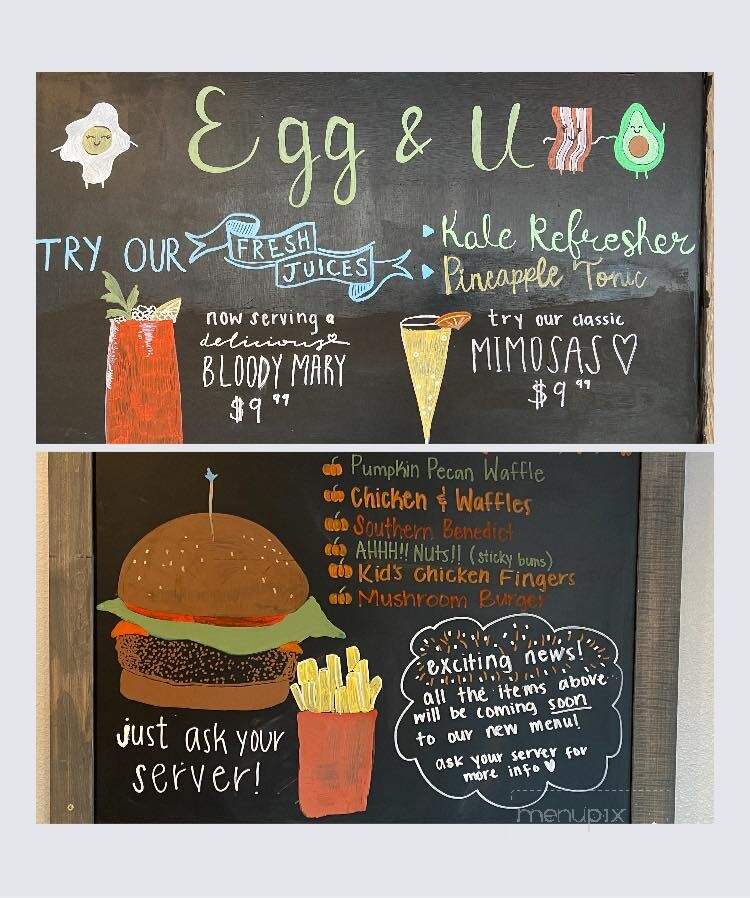 Egg & U
TRY OUR FRESH JUICES
Kale Refresher
Pineapple Tonic
now serving a
delicious
BLOODY MARY
$9.99
try our classic
MIMOSAS
$9.99
Pumpkin Pecan Waffle
Chicken & Waffles
Southern Benedict
AHHH!! Nuts!! (sticky buns)
Kid's Chicken Fingers
Mushroom Burger
just ask your
server!
exciting news!
all the items above
will be coming soon
to our new menu!
ask your server for
more info
menupix